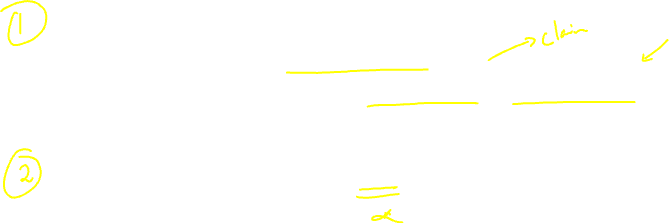 1
claim
2
α